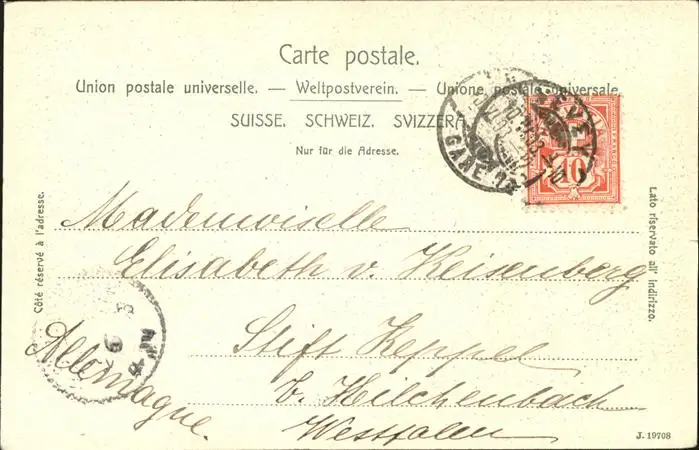 Carte postale.
Union postale universelle. — Weltpostverein. — Unione postale universale.
SUISSE. SCHWEIZ. SVIZZERA.
Nur für die Adresse.
VEVEY
GARE
10
Côté réservé à l'adresse.
Lato riservato all' indirizzo.
Mademoiselle
Elisabeth v. Keisenberg
Stift Keppel
b. Hilchenbach
Westfalen
Allemagne.
J. 19708